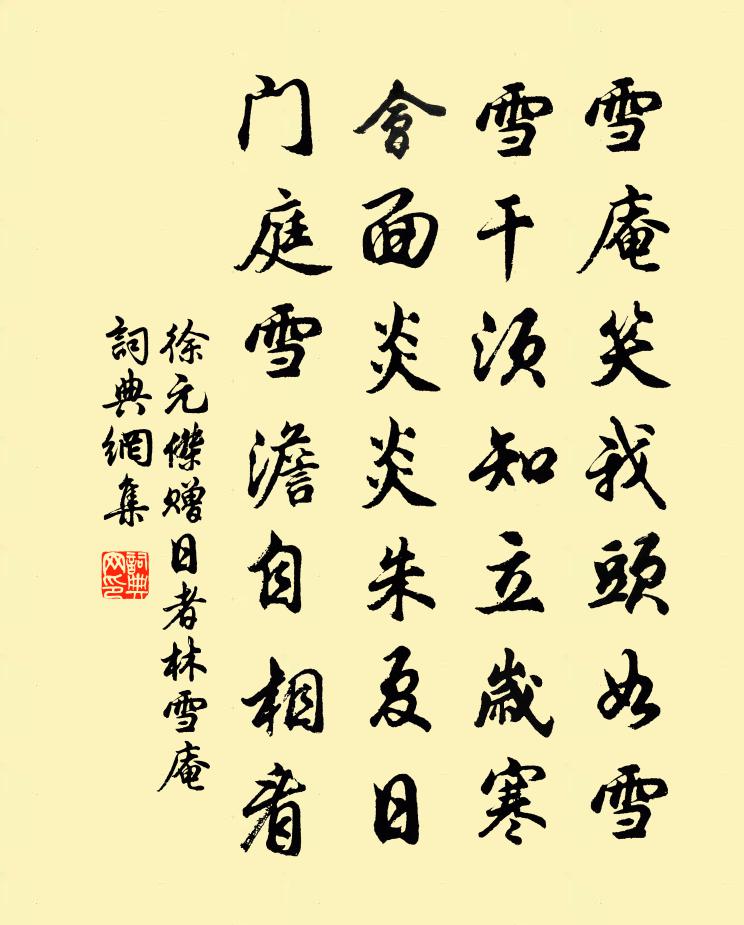 雪庵笑我頭如雪
雪干須知立歲寒
會面炎炎朱夏日
門庭雪澹自相看
徐元傑赠日者林雪庵
詞典網集
詞典网印